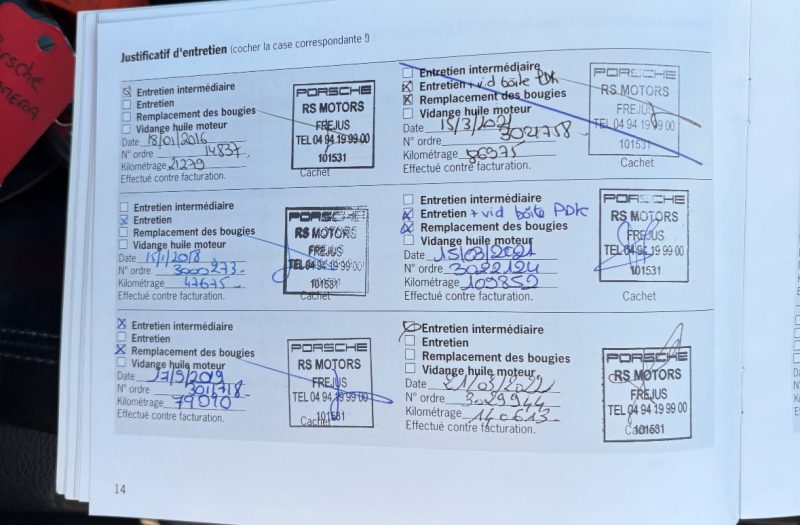 Porsche
Justificatif d'entretien (cocher la case correspondante !)
Entretien intermédiaire
Entretien
Remplacement des bougies
Vidange huile moteur
Date 18/01/2016
N° ordre 14837
Kilométrage 21279
Effectué contre facturation.
PORSCHE
RS MOTORS
FREJUS
TEL 04 94 19 99 00
101531
Entretien intermédiaire
Entretien + vid boîte PDK
Remplacement des bougies
Vidange huile moteur
Date 15/3/2021
N° ordre 3021758
Kilométrage 86975
Effectué contre facturation.
PORSCHE
RS MOTORS
FREJUS
TEL 04 94 19 99 00
101531
Cachet
Entretien intermédiaire
Entretien
Remplacement des bougies
Vidange huile moteur
Date 15/1/2018
N° ordre 3000273
Kilométrage 47675
Effectué contre facturation.
PORSCHE
RS MOTORS
FREJUS
TEL 04 94 19 99 00
101531
Cachet
Entretien intermédiaire
Entretien + vid boîte PDK
Remplacement des bougies
Vidange huile moteur
Date 15/03/2021
N° ordre 3022124
Kilométrage 109852
Effectué contre facturation.
PORSCHE
RS MOTORS
FREJUS
TEL 04 94 19 99 00
101531
Cachet
Entretien intermédiaire
Entretien
Remplacement des bougies
Vidange huile moteur
Date 17/9/2019
N° ordre 3011718
Kilométrage 79010
Effectué contre facturation.
PORSCHE
RS MOTORS
FREJUS
TEL 04 94 19 99 00
101531
Cachet
Entretien intermédiaire
Entretien
Remplacement des bougies
Vidange huile moteur
Date 21/03/2022
N° ordre 3029944
Kilométrage 140613
Effectué contre facturation.
PORSCHE
RS MOTORS
FREJUS
TEL 04 94 19 99 00
101531
14